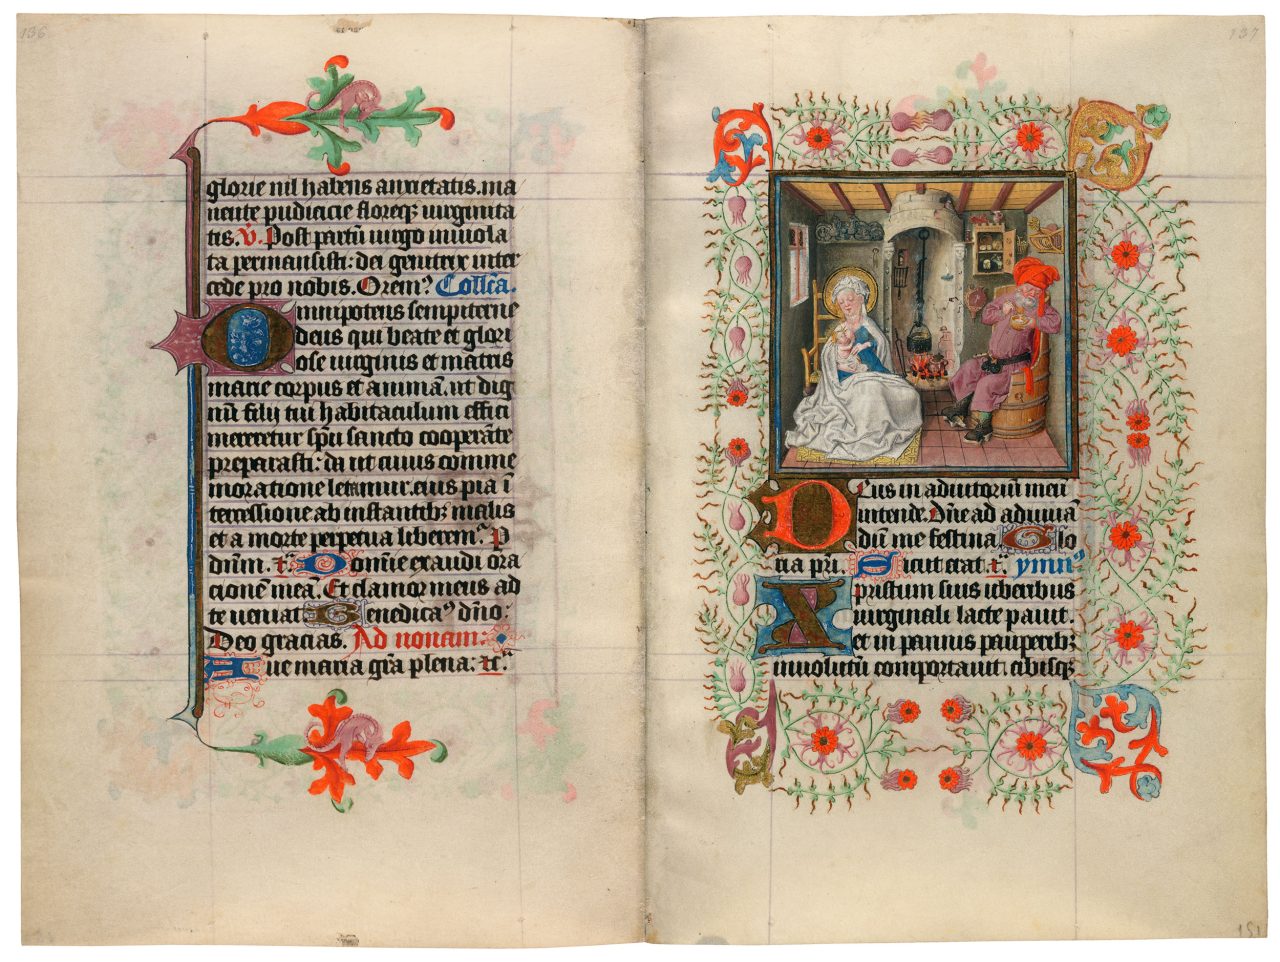 136
glorie nil habens anxietatis. ma
nente pudicicie floreqꝫ uirginita
tis. V̉. Post partū uirgo inuiola
ta permansisti: dei genitrix inter
cede pro nobis. Oremꝰ Collc̄a.
Omnipotens sempiterne
deus qui beate et glori
ose uirginis et matris
marie corpus et animā. ut dig
nū filij tui habitaculum effici
mereretur sp̄u sancto cooperāte
preparasti: da ut cuius comme
moratione letamur. eius pia ī
tercessione ab instantibꝫ malis
et a morte perpetua liberemꝰ. P
dn̄m. ⁊c̄. Domīe exaudi ora
cionē meā. Et clamor meus ad
te ueniat Benedicamꝰ dn̄o:
Deo gracias. Ad nonam:
Aue maria gr̄a plena: ⁊c̄.
137
Deus in adiutoriū meū
intende. Dn̄e ad adiuuā
dū me festina Glo
ria pr̄i. Sicut erat ⁊c̄. ymnꝰ
Xpristum suis uberibus
uirginali lacte pauit.
et in pannis pauperibꝫ
inuolutū comportauit: cibisqꝫ
151